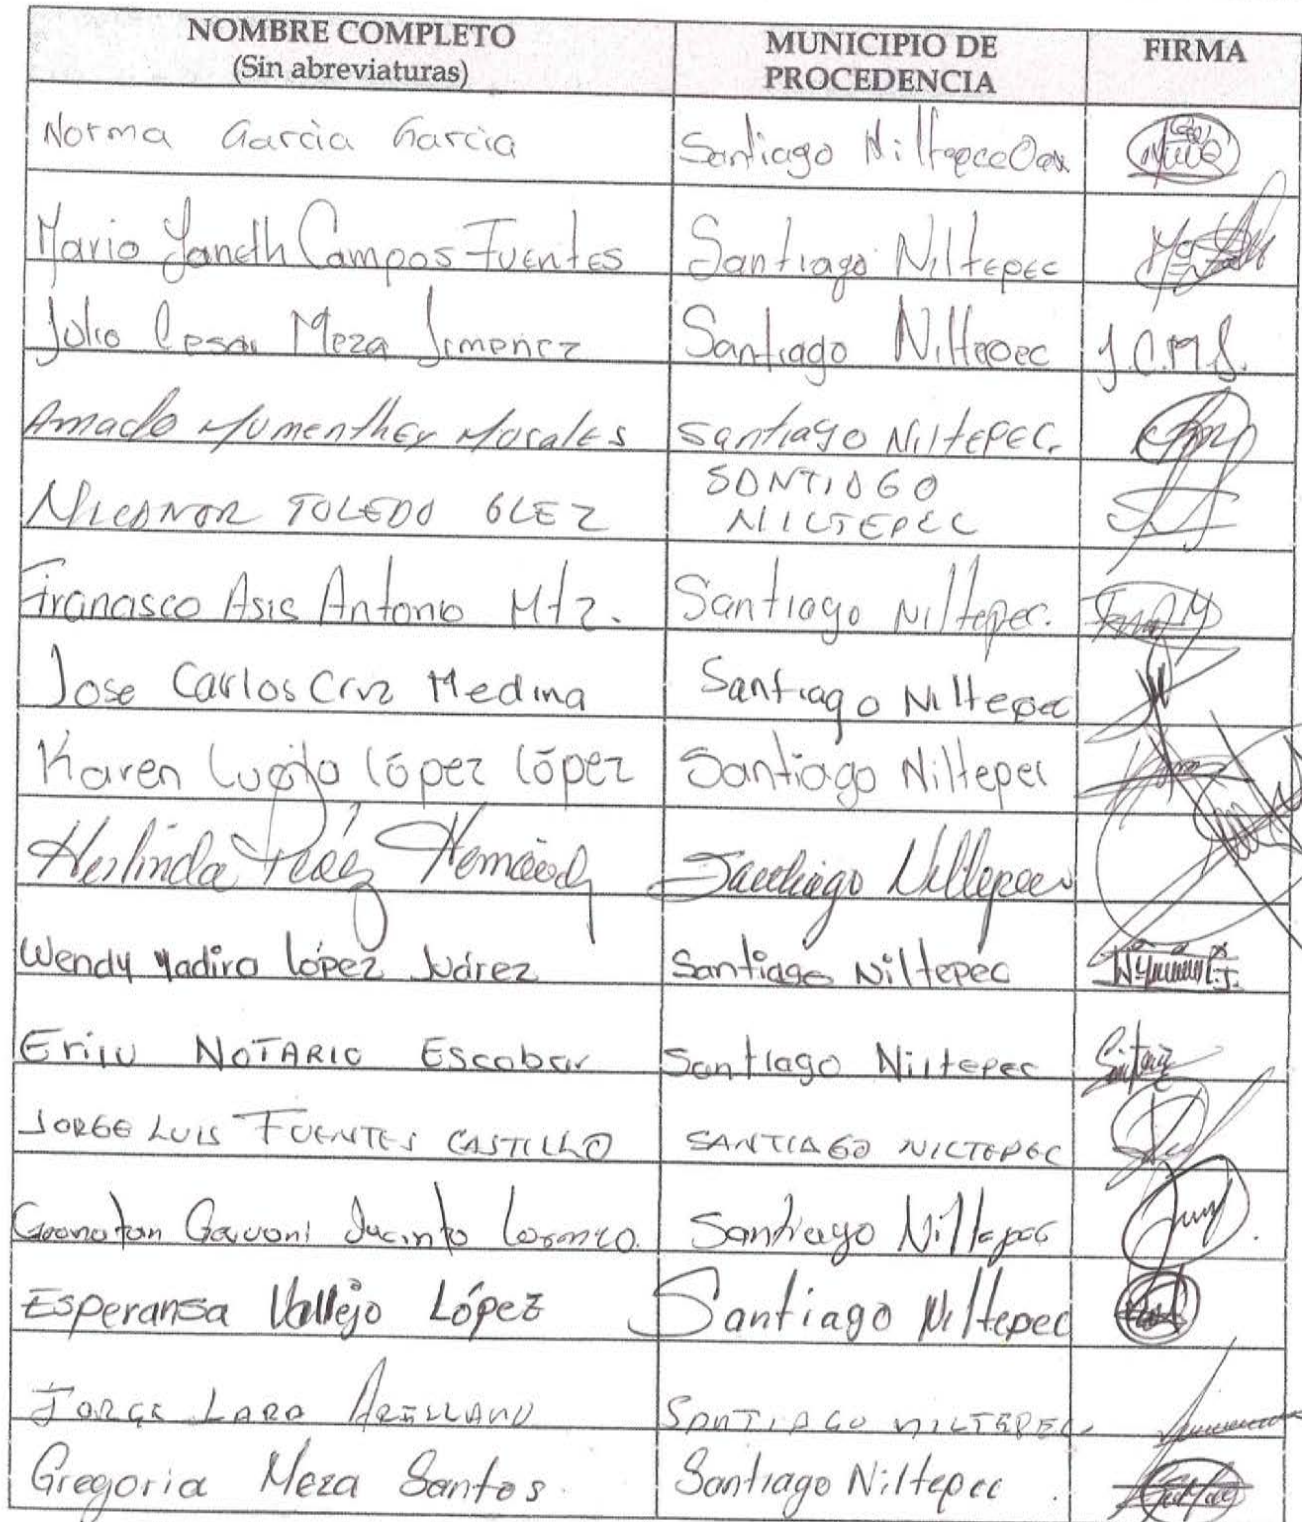 NOMBRE COMPLETO
(Sin abreviaturas)
MUNICIPIO DE
PROCEDENCIA
FIRMA
Norma Garcia Garcia
Santiago Niltepec Oax
Maria Janeth Campos Fuentes
Santiago Niltepec
Julio Cesar Meza Jimenez
Santiago Niltepec
J.C.M.J.
Amado Mumenthey Morales
Santiago Niltepec.
Nicanor TOLEDO GLEZ
SANTIAGO
NILTEPEC
Francisco Asis Antonio Mtz.
Santiago Niltepec.
Jose Carlos Cruz Medina
Santiago Niltepec
Karen Lucita López López
Santiago Niltepec
Herlinda
Santiago Niltepec
Wendy Yadira López Juárez
Santiago Niltepec
NOTARIO Escobar
Santiago Niltepec
JORGE LUIS FUENTES CASTILLO
SANTIAGO NILTEPEC
Geovani Jacinto Lorenzo.
Santiago Niltepec
Esperansa Vallejo López
Santiago Niltepec
JORGE LARA ARELLANO
SANTIAGO NILTEPEC.
Gregoria Meza Santos.
Santiago Niltepec.